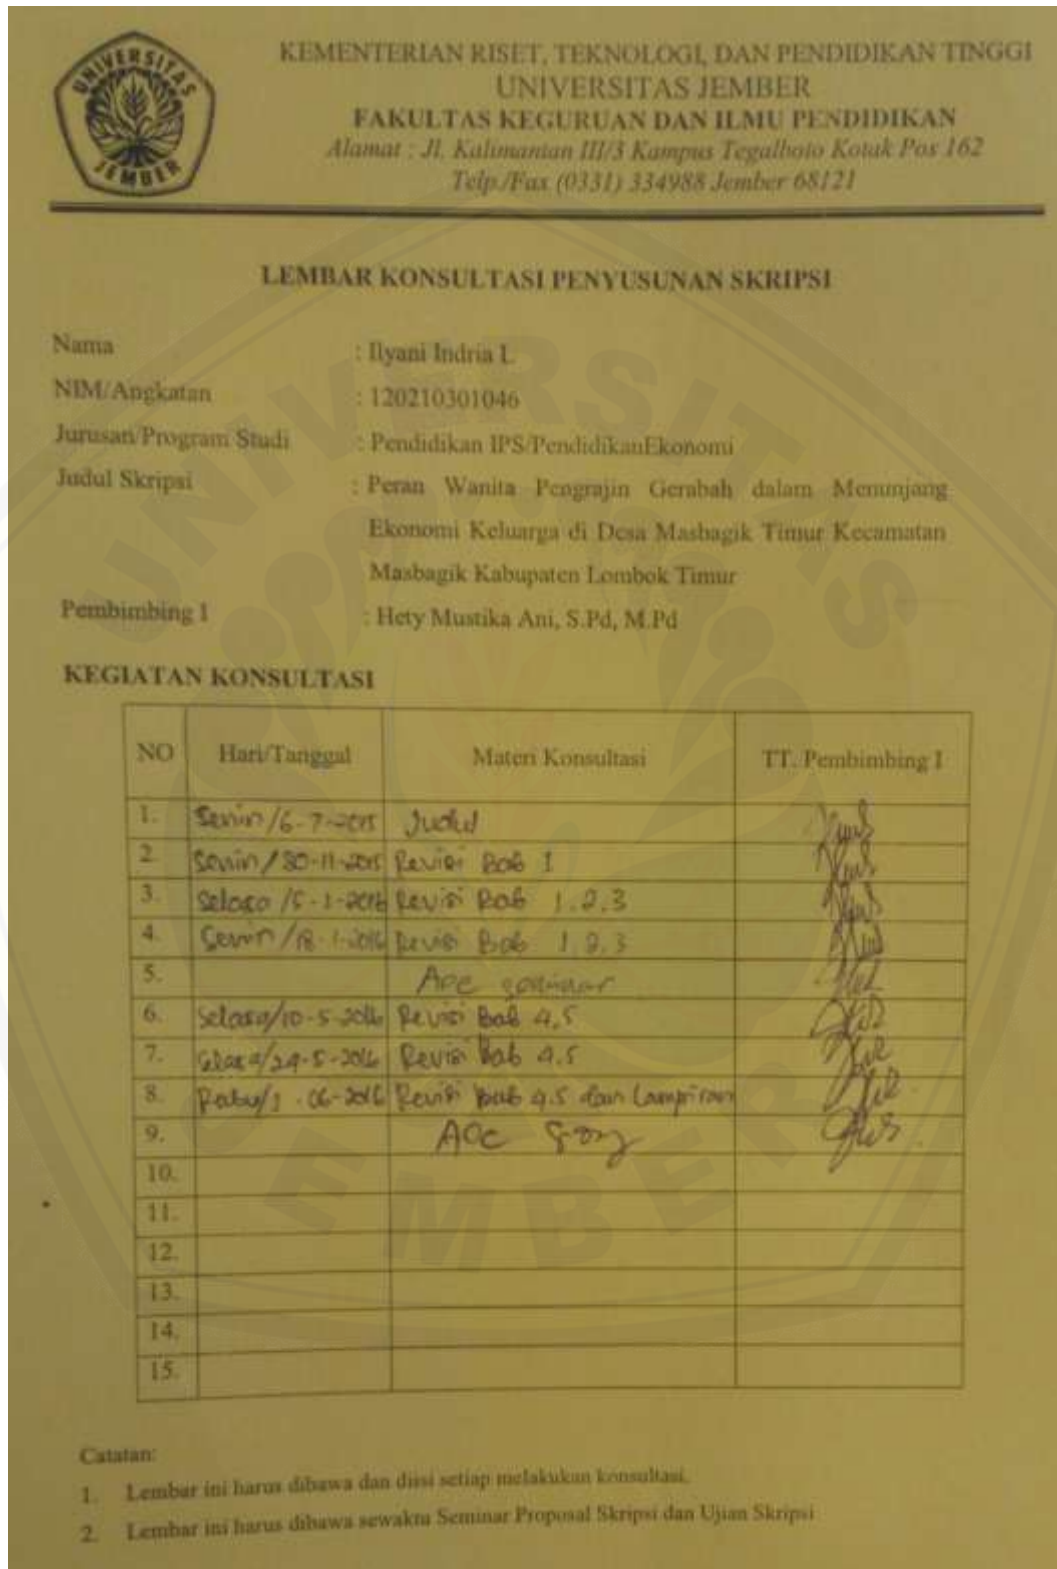 KEMENTERIAN RISET, TEKNOLOGI, DAN PENDIDIKAN TINGGI
UNIVERSITAS JEMBER
FAKULTAS KEGURUAN DAN ILMU PENDIDIKAN
Alamat : Jl. Kalimantan III/3 Kampus Tegalboto Kotak Pos 162
Telp./Fax (0331) 334988 Jember 68121
UNIVERSITAS
JEMBER
LEMBAR KONSULTASI PENYUSUNAN SKRIPSI
Nama : Ilyani Indria L
NIM/Angkatan : 120210301046
Jurusan/Program Studi : Pendidikan IPS/PendidikanEkonomi
Judul Skripsi : Peran Wanita Pengrajin Gerabah dalam Menunjang
Ekonomi Keluarga di Desa Masbagik Timur Kecamatan
Masbagik Kabupaten Lombok Timur
Pembimbing I : Hety Mustika Ani, S.Pd, M.Pd
KEGIATAN KONSULTASI
NO Hari/Tanggal Materi Konsultasi TT. Pembimbing I
1. Senin/6-7-2015 Judul
2. Senin/30-11-2015 Revisi Bab 1
3. Selasa/5-1-2016 Revisi Bab 1.2.3
4. Senin/18-1-2016 Revisi Bab 1.2.3
5. Acc seminar
6. Selasa/10-5-2016 Revisi Bab 4,5
7. Selasa/24-5-2016 Revisi Bab 4.5
8. Rabu/1-06-2016 Revisi Bab 4.5 dan Lampiran
9. Acc
10.
11.
12.
13.
14.
15.
Catatan:
1. Lembar ini harus dibawa dan diisi setiap melakukan konsultasi.
2. Lembar ini harus dibawa sewaktu Seminar Proposal Skripsi dan Ujian Skripsi